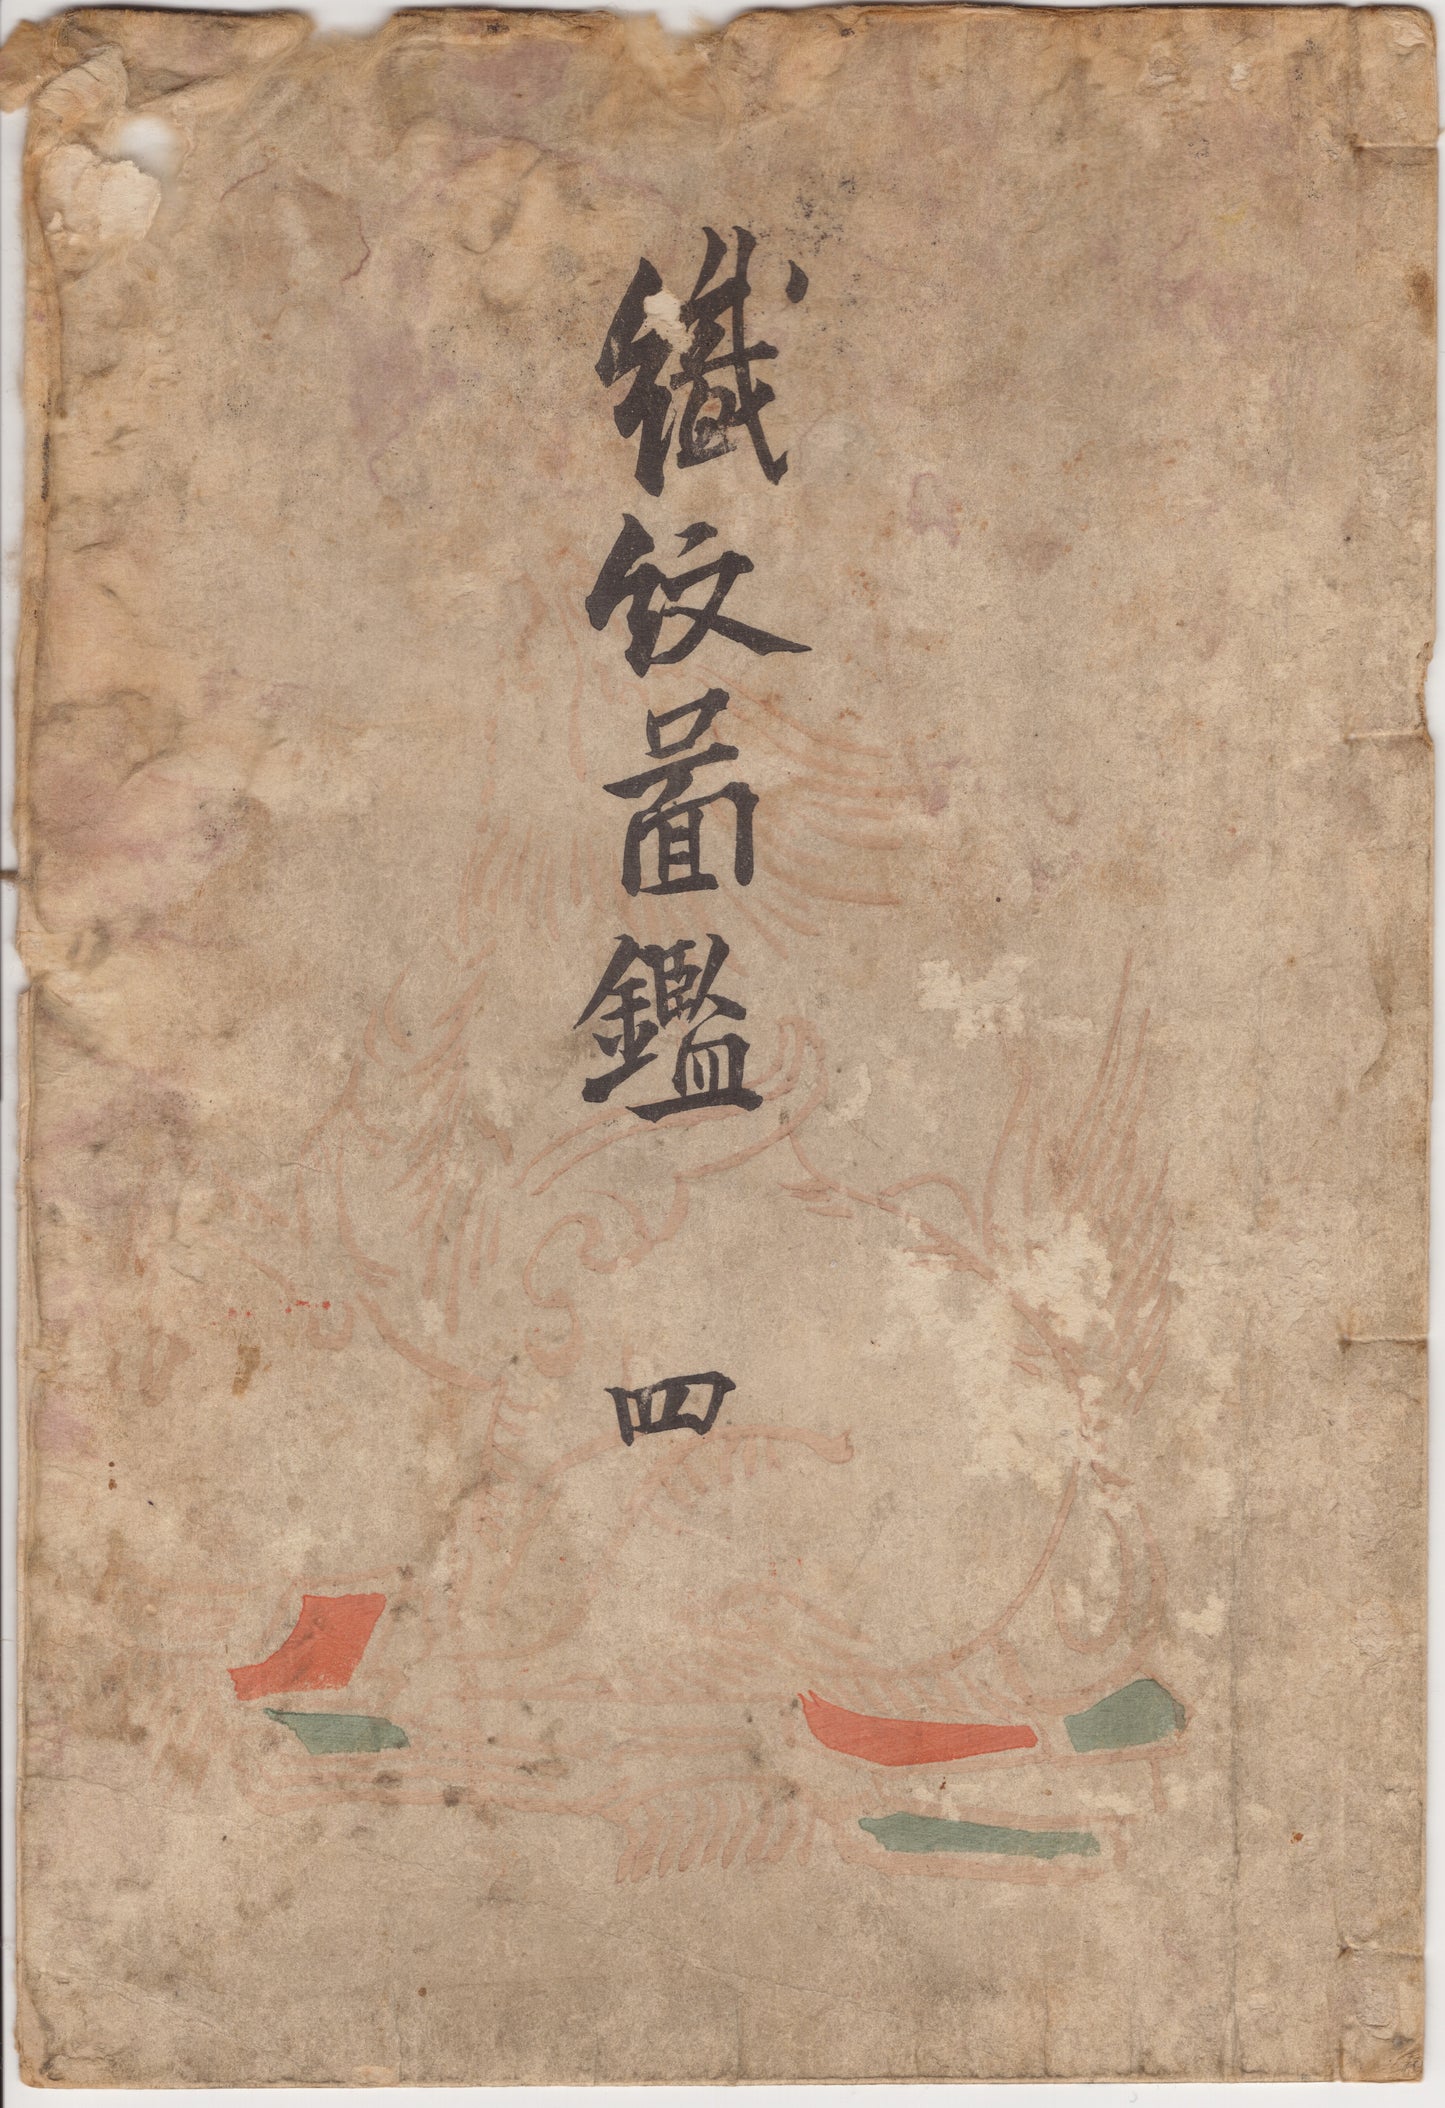 織紋啚鑑
四